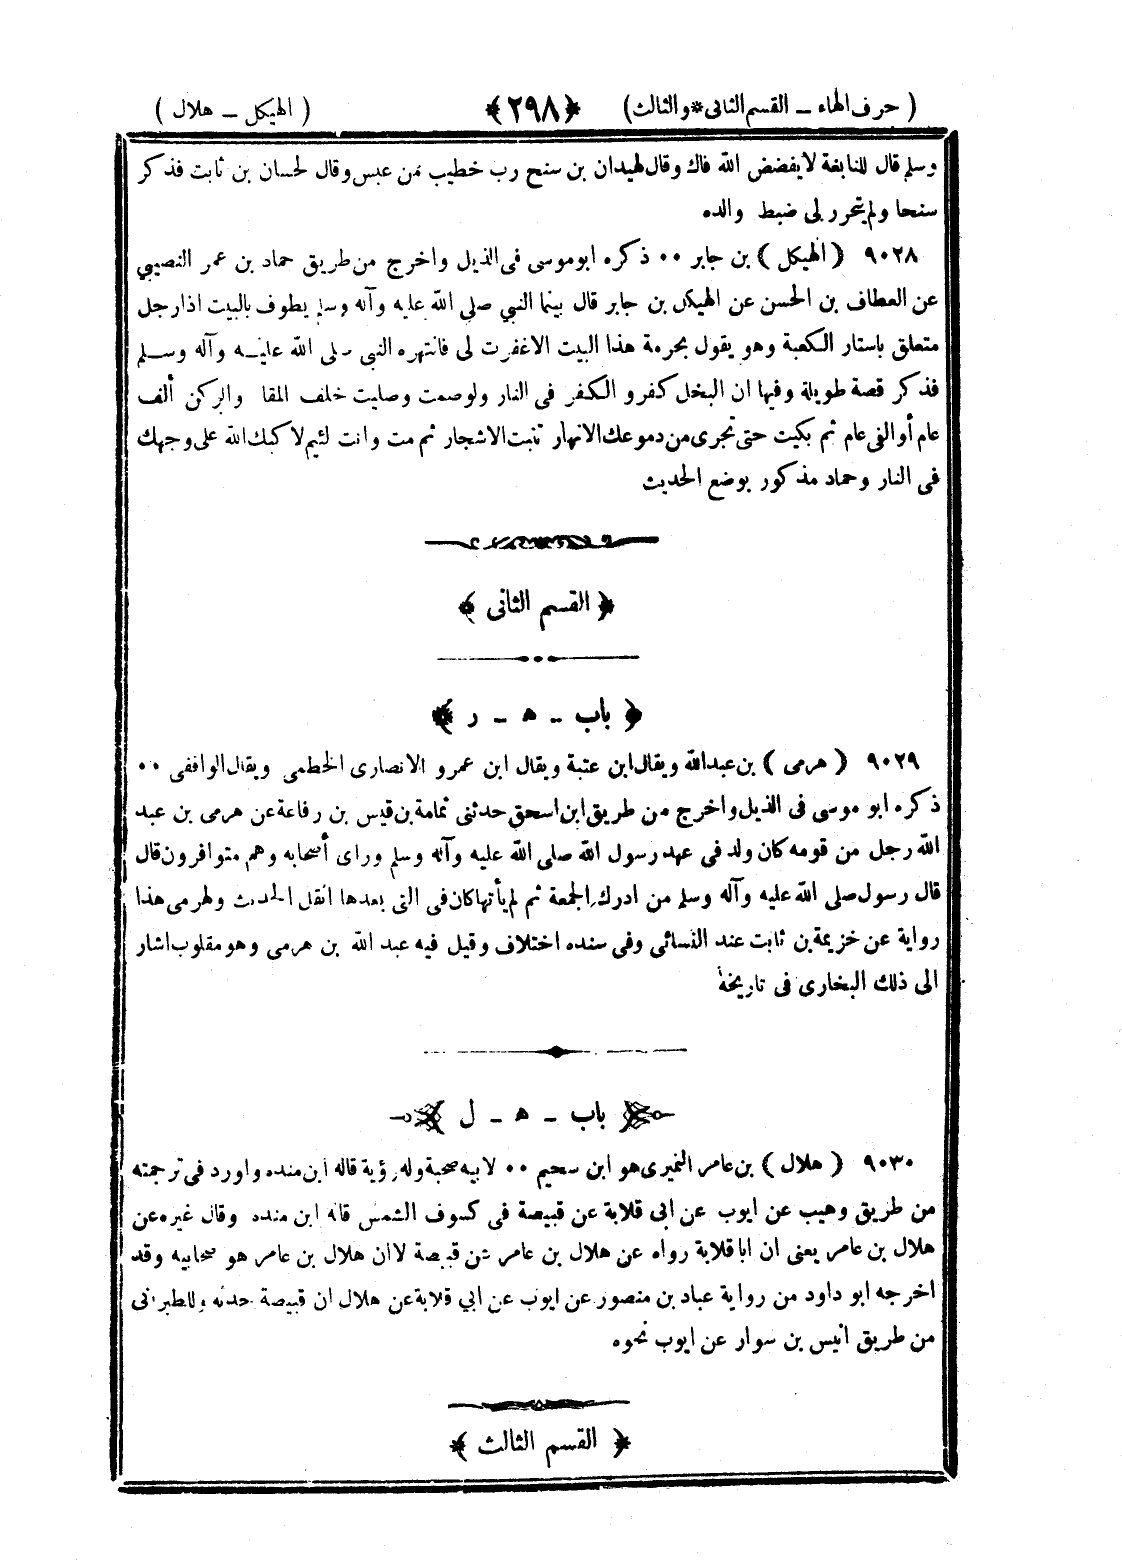 ( حرف الهاء ــ القسم الثانى * والثالث ) ﴿ ٢٩٨ ﴾ ( الهيكل ــ هلال )
وسلم قال للنابغة لا يفضض الله فاك وقال لهيدان بن سنح رب خطيب من عبس وقال لحسان بن ثابت فذكر
سنحا ولم يتحرر لى ضبط والده
٩٠٢٨ ( الهيكل ) بن جابر ٠٠ ذكره ابو موسى فى الذيل واخرج من طريق حماد بن عمر النصيبي
عن العطاف بن الحسن عن الهيكل بن جابر قال بينما النبي صلى الله عليه وآله وسلم يطوف بالبيت اذا رجل
متعلق باستار الكعبة وهو يقول بحرمة هذا البيت الا غفرت لى فانتهره النبى صلى الله عليه وآله وسلم
فذكر قصة طويلة وفيها ان البخل كفر و الكفر فى النار ولو صمت وصليت خلف المقا والركن ألف
عام أو الفى عام ثم بكيت حتى تجرى من دموعك الانهار تنبت الاشجار ثم مت وانت لئيم لا كبك الله على وجهك
فى النار وحماد مذكور بوضع الحديث
﴿ القسم الثانى ﴾
﴿ باب ـ ه ـ ر ﴾
٩٠٢٩ ( هرمى ) بن عبد الله ويقال ابن عتبة ويقال ابن عمرو الانصارى الخطمى ويقال الواقفى ٠٠
ذكره ابو موسى فى الذيل واخرج من طريق ابن اسحق حدثنى ثمامة بن قيس بن رفاعة عن هرمى بن عبد
الله رجل من قومه كان ولد فى عهد رسول الله صلى الله عليه وآله وسلم وراى أصحابه وهم متوافرون قال
قال رسول صلى الله عليه وآله وسلم من ادرك الجمعة ثم لم يأتها كان فى التى بعدها انقل الحديث ولهرمى هذا
رواية عن خزيمة بن ثابت عند النسائى وفى سنده اختلاف وقيل فيه عبد الله بن هرمى وهو مقلوب اشار
الى ذلك البخارى فى تاريخه
باب ـ ه ـ ل
٩٠٣٠ ( هلال ) بن عامر النميرى هو ابن سحيم ٠٠ لابيه صحبة وله رؤية قاله ابن منده واورد فى ترجمته
من طريق وهيب عن ايوب عن ابى قلابة عن قبيصة فى كسوف الشمس قاله ابن منده وقال غيره عن
هلال بن عامر يعنى ان ابا قلابة رواه عن هلال بن عامر عن قبيصة لا ان هلال بن عامر هو صحابيه وقد
اخرجه ابو داود من رواية عباد بن منصور عن ايوب عن ابي قلابة عن هلال ان قبيصة حدثه وللطبرانى
من طريق انيس بن سوار عن ايوب نحوه
﴿ القسم الثالث ﴾